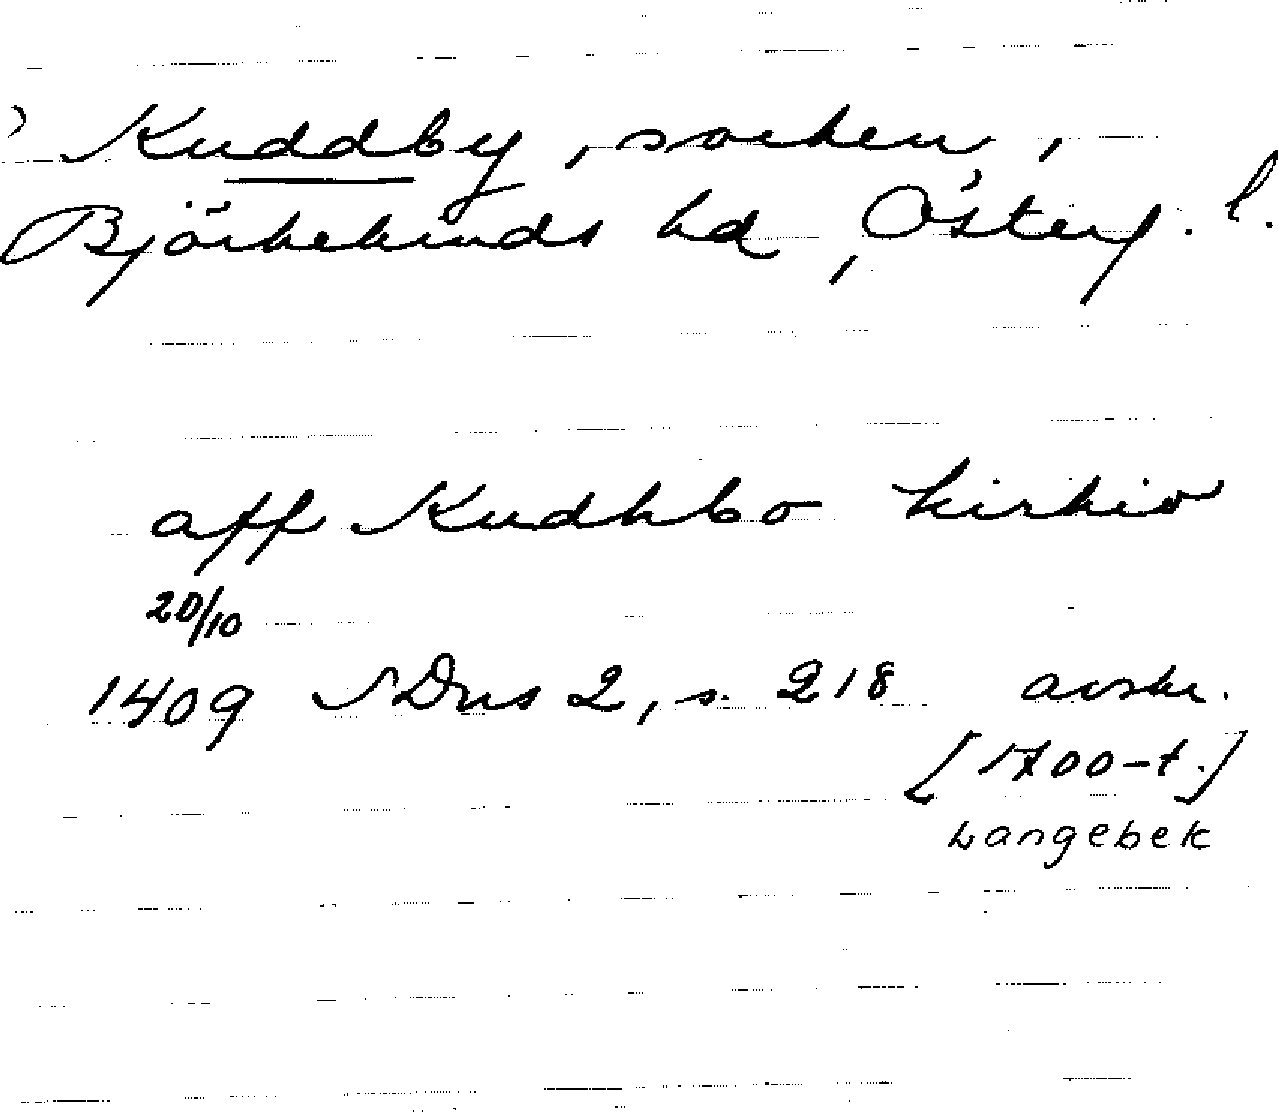 Kuddby, socken,
Björkekinds hd, Österg. l.
aff Kudhbo kirkio
20/10
1409 SDns 2, s. 218 avskr.
[1700-t.]
Langebek